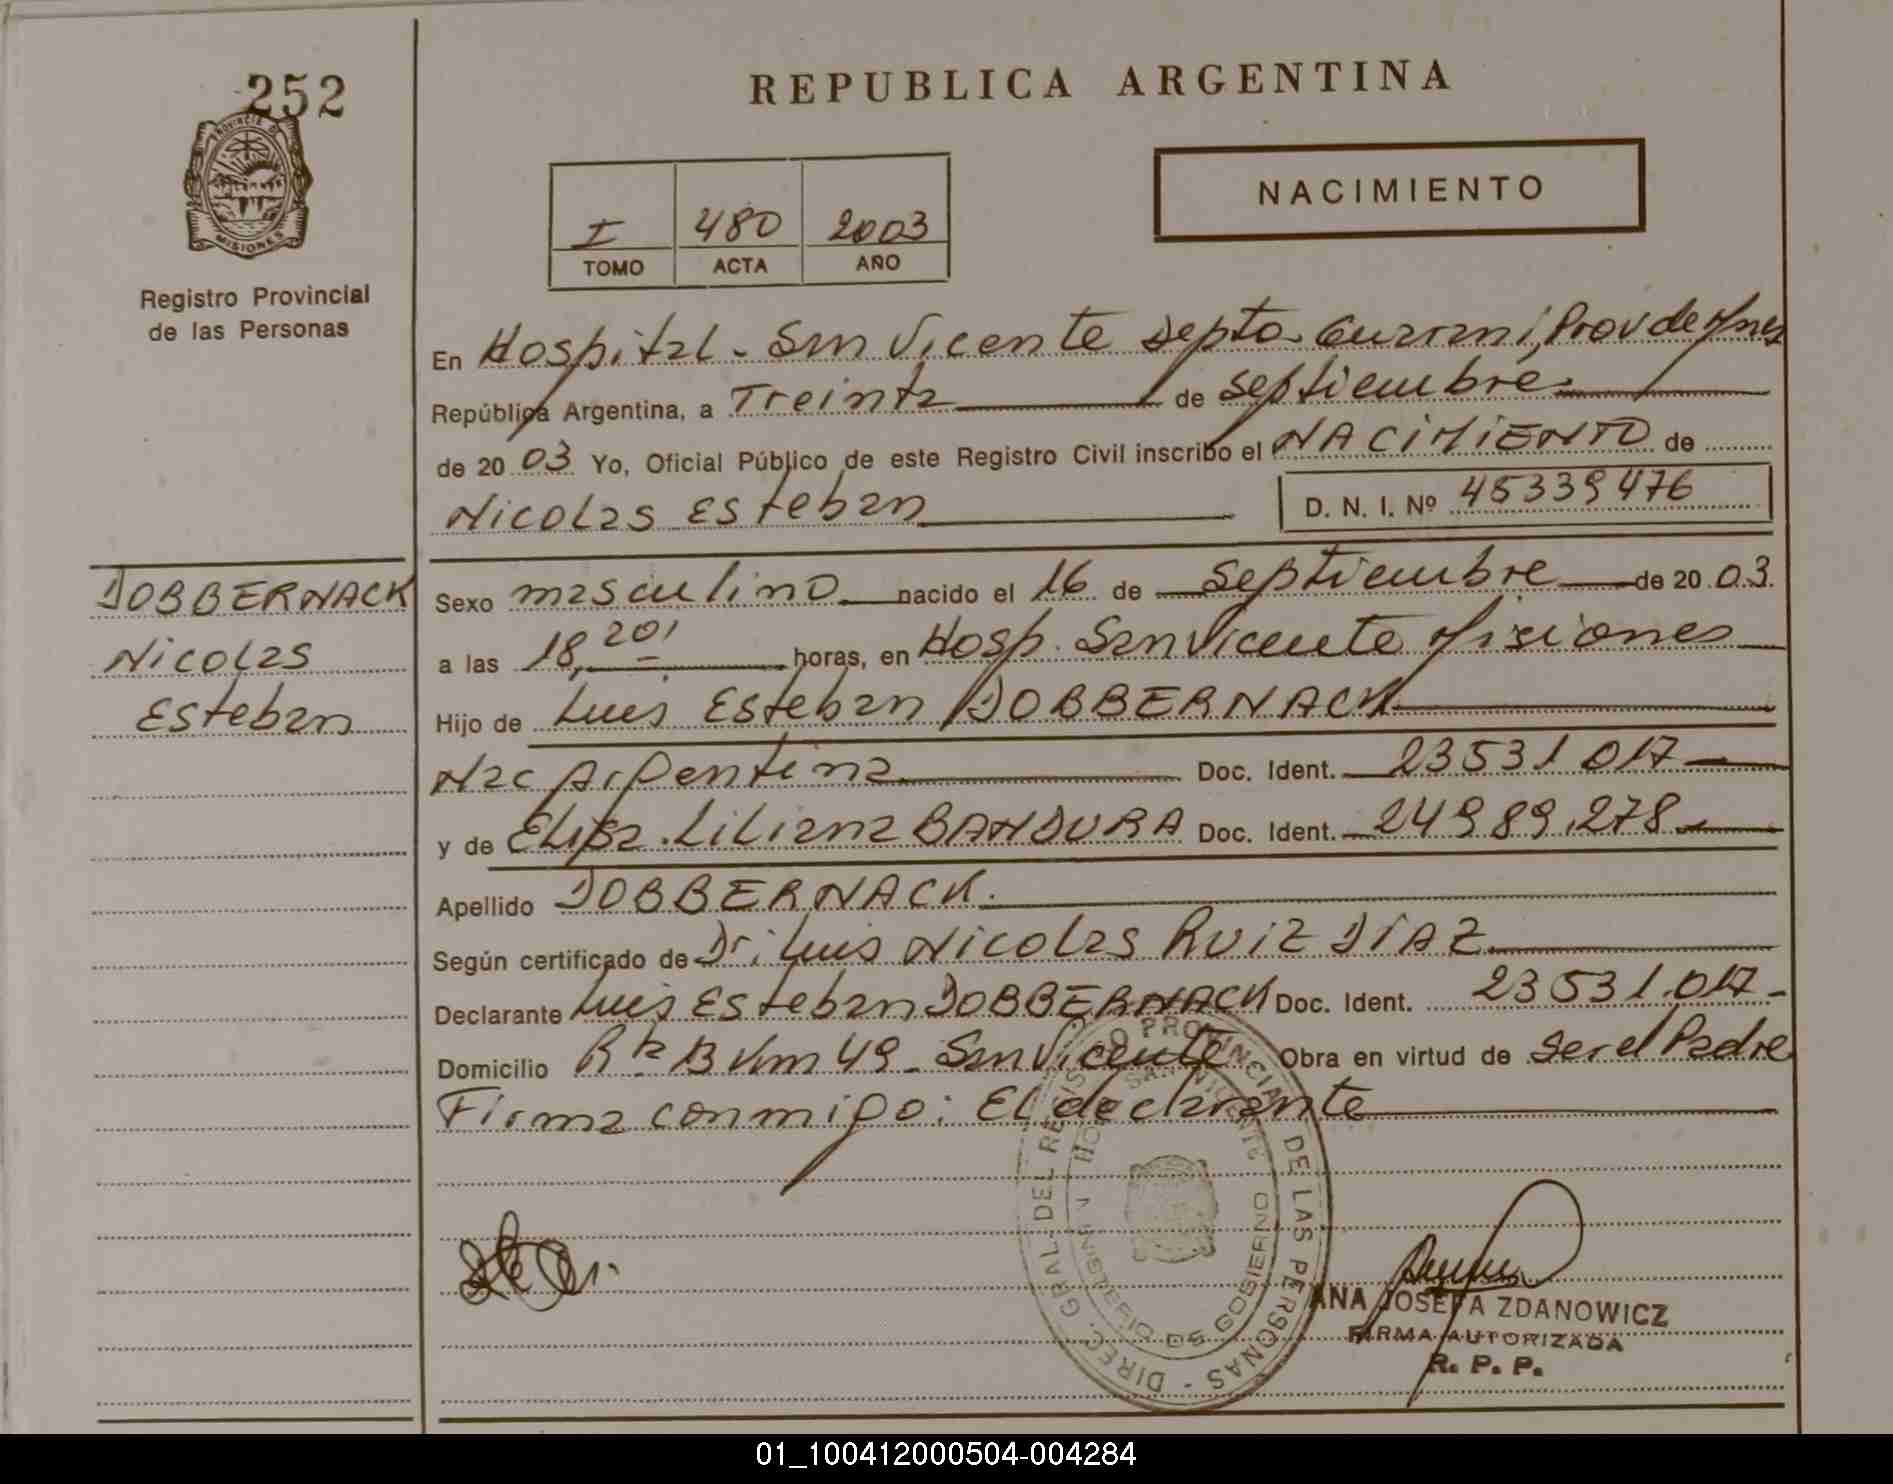 252
PROVINCIA DE
MISIONES
Registro Provincial
de las Personas
REPUBLICA ARGENTINA
I 480 2003
TOMO ACTA AÑO
NACIMIENTO
En Hospital - San Vicente Depto Guarani, Prov de Mnes
República Argentina, a Treinta de Septiembre
de 20 03 Yo, Oficial Público de este Registro Civil inscribo el NACIMIENTO de
Nicolas Esteban D. N. I. Nº 45339476
DOBBERNACK
Nicolas
Esteban
Sexo masculino nacido el 16 de Septiembre de 20 03.
a las 18,20' horas, en Hosp. San Vicente Misiones
Hijo de Luis Esteban DOBBERNACK
Nac Argentina Doc. Ident. 23531017
y de Elisa Liliana BANDURA Doc. Ident. 24989.278
Apellido DOBBERNACK.
Según certificado de Dr: Luis Nicolas RUIZ DIAZ
Declarante Luis Esteban DOBBERNACK Doc. Ident. 23531.017-
Domicilio Rta 13 Km 49 - San Vicente Obra en virtud de ser el Padre
Firma conmigo: El declarante
DIREC. GRAL. DEL REGISTRO PROVINCIAL DE LAS PERSONAS -
SAN VICENTE
MINISTERIO DE GOBIERNO
ANA JOSEFA ZDANOWICZ
FIRMA AUTORIZADA
R. P. P.
01_100412000504-004284